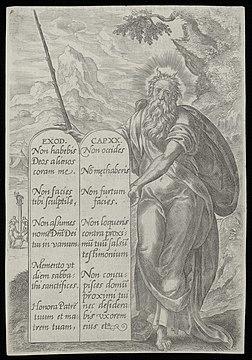 EXOD.
Non habebis
Deos alienos
coram me.
Non facies
tibi sculptile,
Non assumes
nomē Dm̄i Dei
tui in vanum.
Memento ut
diem sabba-
thi sanctifices.
Honora Patrē
tuum et ma
trem tuam,
CAP. XX.
Non occides
Nō mechaberis
Non furtum
facies.
Non loqueris
contra proxi-
mū tuū falsū
testimonium
Non concu-
pisces domū
proximi tui
nec desidera
bis vxorem
eius etc